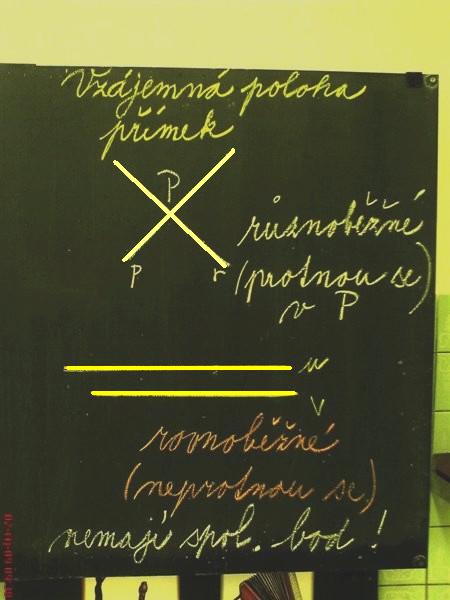 Vzájemná poloha
přímek
P
p
r
různoběžné
(protnou se)
v P
u
v
rovnoběžné
(neprotnou se)
nemají spol. bod!